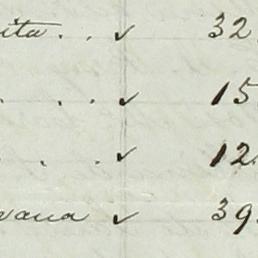 ita . . ✓ 32
. . . ✓ 15
. . . ✓ 12
vana ✓ 39